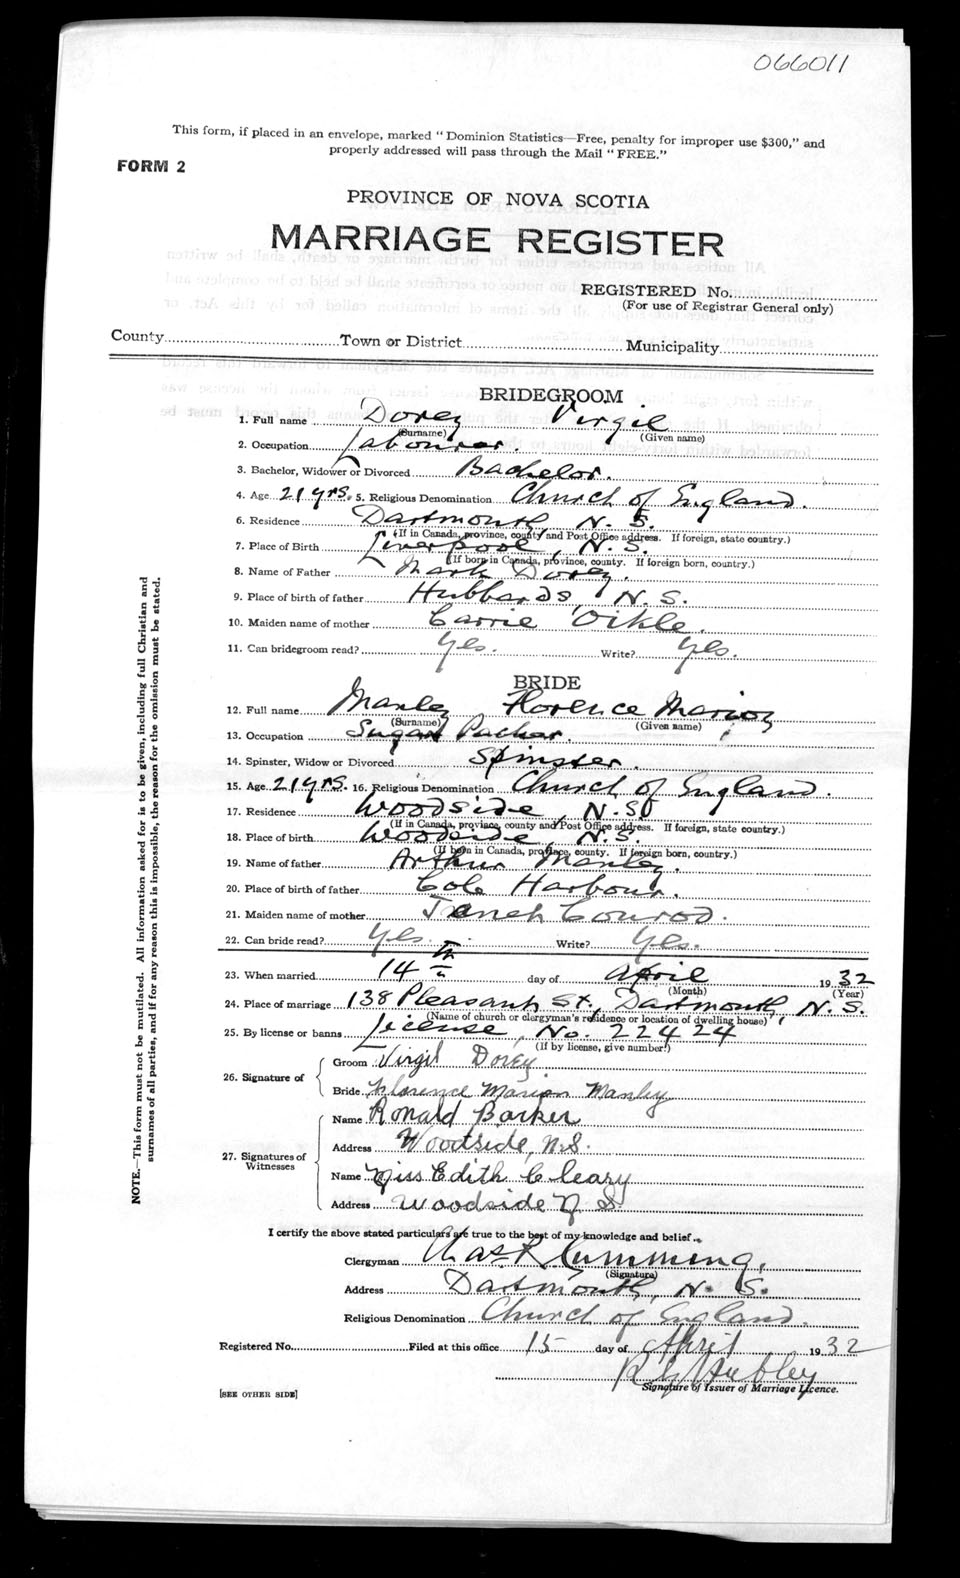 066011
This form, if placed in an envelope, marked "Dominion Statistics—Free, penalty for improper use $300," and
properly addressed will pass through the Mail "FREE."
FORM 2
PROVINCE OF NOVA SCOTIA
MARRIAGE REGISTER
REGISTERED No.
(For use of Registrar General only)
County Town or District Municipality
BRIDEGROOM
1. Full name Dorey Virgil
(Surname) (Given name)
2. Occupation Labourer.
3. Bachelor, Widower or Divorced Bachelor.
4. Age 21 yrs. 5. Religious Denomination Church of England.
6. Residence Dartmouth, N. S.
(If in Canada, province, county and Post Office address. If foreign, state country.)
7. Place of Birth Liverpool, N. S.
(If born in Canada, province, county. If foreign born, country.)
8. Name of Father Mark Dorey.
9. Place of birth of father Hubbards N. S.
10. Maiden name of mother Carrie Oikle.
11. Can bridegroom read? Yes. Write? Yes.
BRIDE
12. Full name Manley Florence Marion
(Surname) (Given name)
13. Occupation Sugar Packer.
14. Spinster, Widow or Divorced Spinster.
15. Age 21 yrs. 16. Religious Denomination Church of England.
17. Residence Woodside, N. S.
(If in Canada, province, county and Post Office address. If foreign, state country.)
18. Place of birth Woodside, N. S.
(If born in Canada, province, county. If foreign born, country.)
19. Name of father Arthur Manley.
20. Place of birth of father Cole Harbour.
21. Maiden name of mother Conrod.
22. Can bride read? Yes. Write? Yes.
23. When married 14th day of April 1932
(Month) (Year)
24. Place of marriage 138 Pleasant St., Dartmouth, N. S.
(Name of church or clergyman's residence or location of dwelling house)
25. By license or banns License, No. 22424
(If by license, give number.)
26. Signature of Groom Virgil Dorey.
Bride Florence Marion Manley
27. Signatures of Witnesses Name Ronald Barker
Address Woodside, N.S.
Name Miss Edith Cleary
Address Woodside N. S.
I certify the above stated particulars are true to the best of my knowledge and belief.
Clergyman Chas R Cumming.
(Signature)
Address Dartmouth, N. S.
Religious Denomination Church of England.
Registered No. Filed at this office 15 day of April 1932
R G Hubley
Signature of Issuer of Marriage Licence.
[SEE OTHER SIDE]
NOTE.—This form must not be mutilated. All information asked for is to be given, including full Christian and
surnames of all parties, and if for any reason this is impossible, the reason for the omission must be stated.